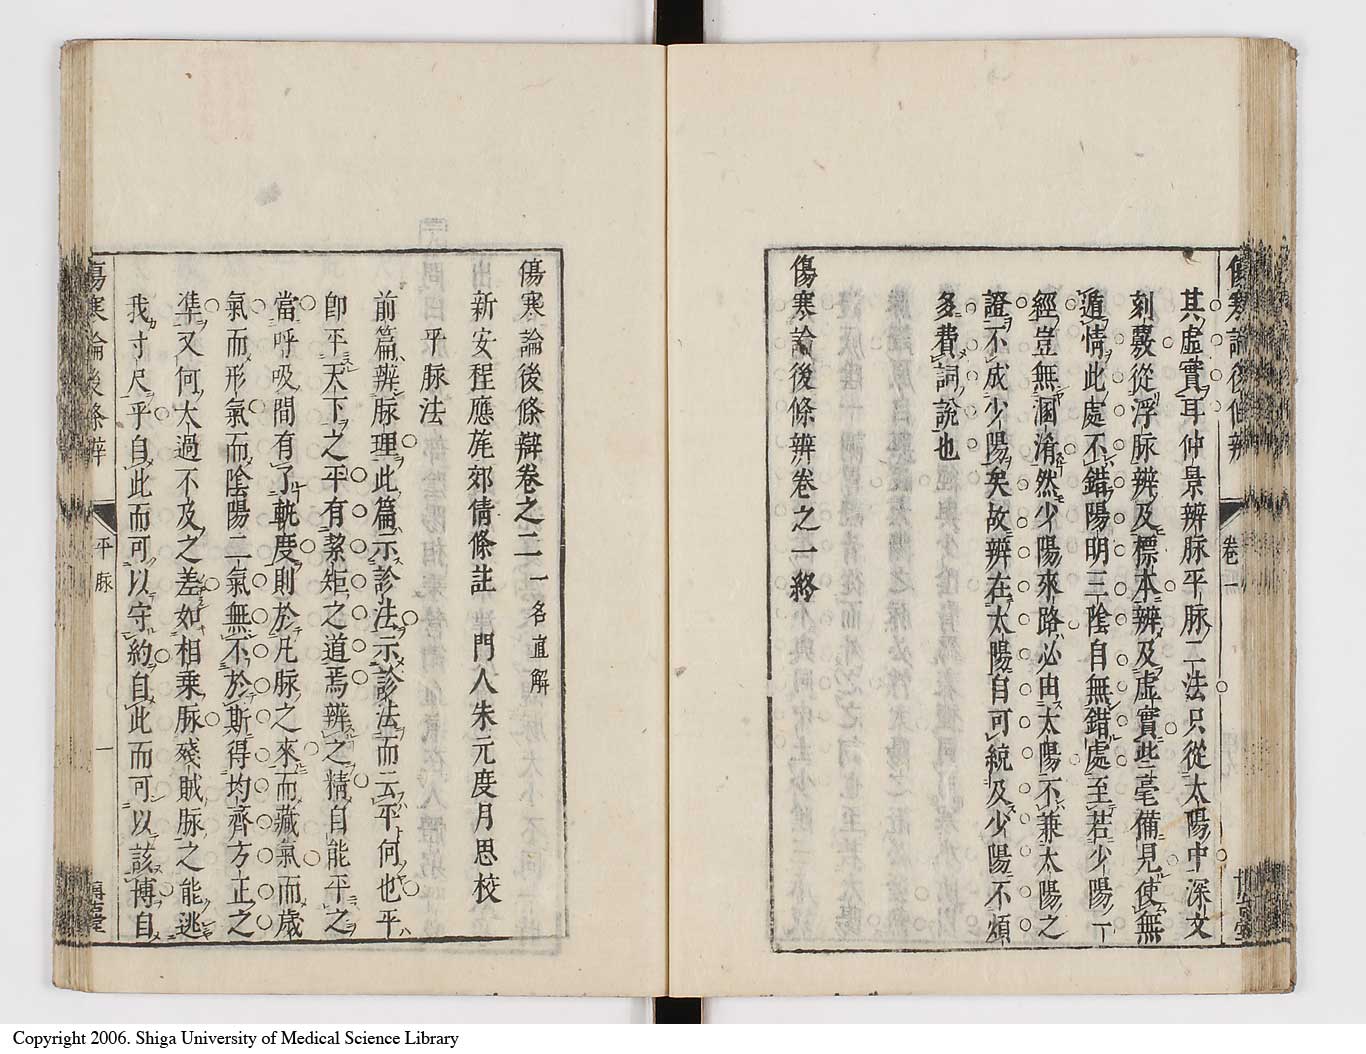 傷寒論後條辨
卷一
博古堂
其虛實耳仲景辨脉平脉二法只從太陽中深文
刻覈從浮脉辨及標本辨及虛實些毫備見使無
遁情此處不錯陽明三陰自無錯處至若少陽一
經豈無溷淆然少陽來路必由太陽不兼太陽之
證不成少陽矣故辨在太陽自可統及少陽不煩
多費詞說也
傷寒論後條辨卷之一終
傷寒論後條辯卷之二 一名直解
新安程應旄郊倩條註 門人朱元度月思校
平脉法
前篇辨脉理此篇示診法示診法而云平何也平
卽平天下之平有絜矩之道焉辨之精自能平之
當呼吸間有了軌度則於凡脉之來而藏氣而歲
氣而形氣而陰陽二氣無不於斯得均齊方正之
準又何太過不及之差如相乗脉殘賊脉之能逃
我寸尺乎自此而可以守約自此而可以該博自
傷寒論後條辨
平脉
一
博古堂
Copyright 2006. Shiga University of Medical Science Library